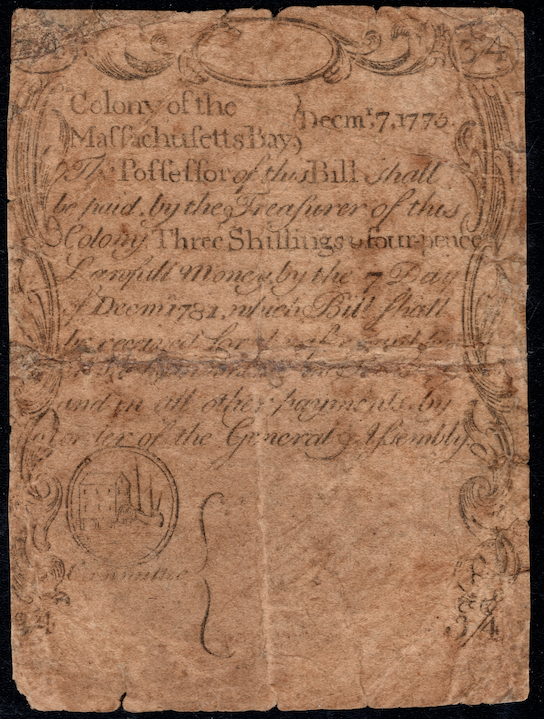 3/4
Colony of the
Massachusetts Bay } Decmr. 7, 1775.
The Possessor of this Bill shall
be paid, by the Treasurer of this
Colony, Three Shillings & four-pence
Lawfull Money, by the 7 Day
of Decmr. 1781, which Bill shall
be received for
and in all other payments by
order of the General Assembly
Committee
3/4